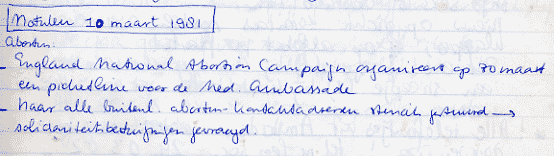 Notulen 10 maart 1981
abortus.
- England National Abortion Campaign organiseert op 30 maart
een picketline voor de Ned. Ambassade
- Naar alle buitenl. abortus-kontaktadressen stencil gestuurd →
solidariteitsbetuigingen gevraagd.